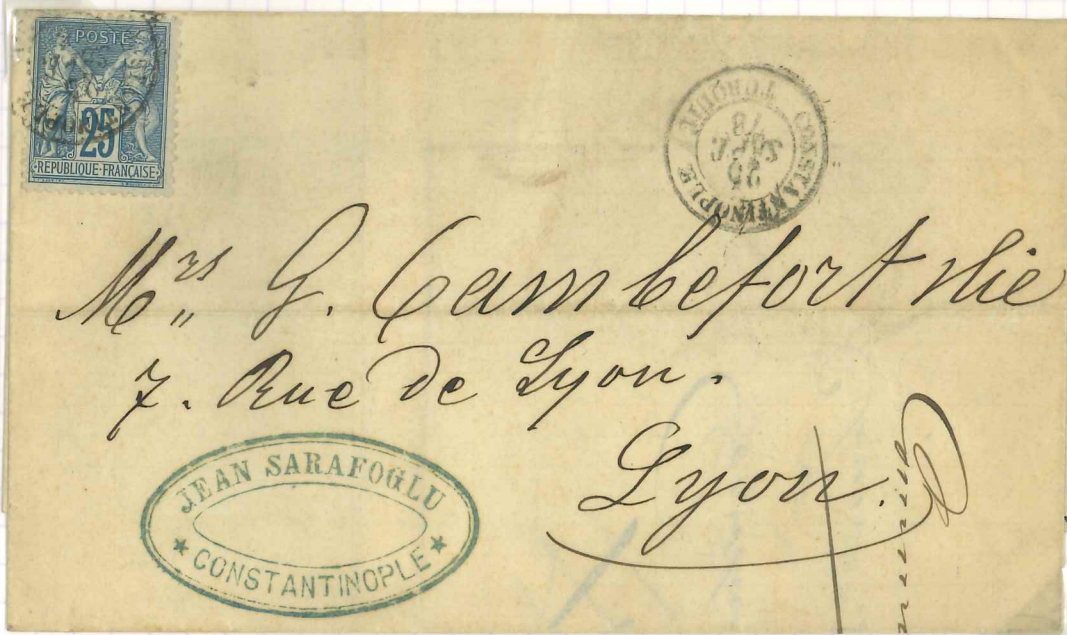 POSTE
25
REPUBLIQUE FRANÇAISE
CONSTANTINOPLE TURQUIE
26
SEPT
78
Mrs G. Cambefort & Cie
7. Rue de Lyon.
Lyon.
JEAN SARAFOGLU
CONSTANTINOPLE